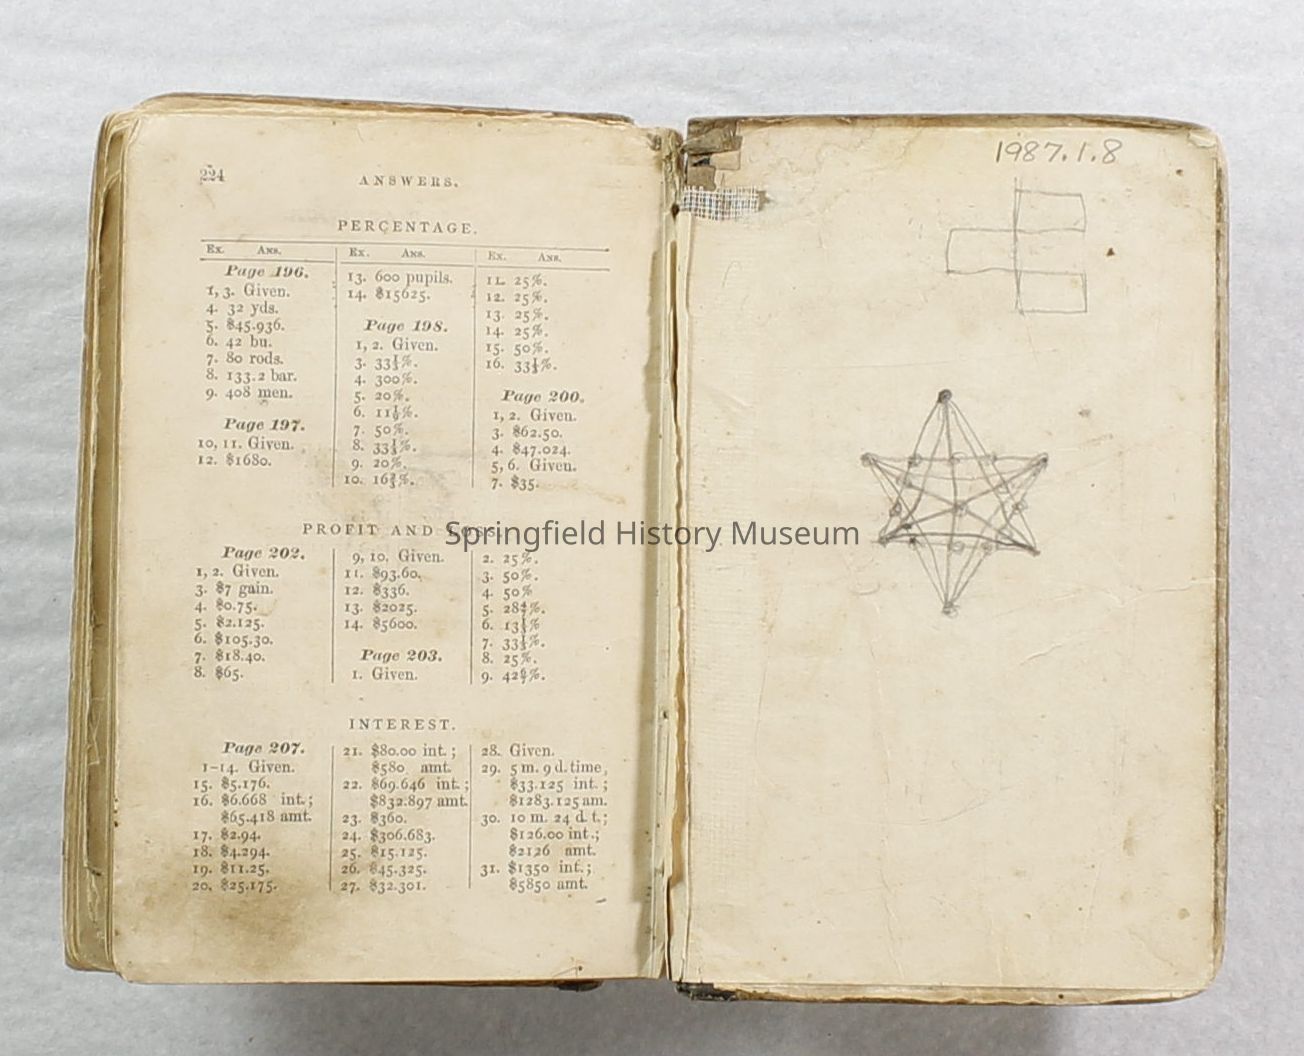 224
ANSWERS.
PERCENTAGE.
Ex. Ans.
Page 196.
1, 3. Given.
4. 32 yds.
5. $45.936.
6. 42 bu.
7. 80 rods.
8. 133.2 bar.
9. 408 men.
Page 197.
10, 11. Given.
12. $1680.
Ex. Ans.
13. 600 pupils.
14. $15625.
Page 198.
1, 2. Given.
3. 33⅓%.
4. 300%.
5. 20%.
6. 11⅑%.
7. 50%.
8. 33⅓%.
9. 20%.
10. 16⅔%.
Ex. Ans.
11. 25%.
12. 25%.
13. 25%.
14. 25%.
15. 50%.
16. 33⅓%.
Page 200.
1, 2. Given.
3. $62.50.
4. $47.024.
5, 6. Given.
7. $35.
PROFIT AND LOSS.
Page 202.
1, 2. Given.
3. $7 gain.
4. $0.75.
5. $2.125.
6. $105.30.
7. $18.40.
8. $65.
9, 10. Given.
11. $93.60.
12. $336.
13. $2025.
14. $5600.
Page 203.
1. Given.
2. 25%.
3. 50%.
4. 50%
5. 284/7%.
6. 13⅓%
7. 33⅓%.
8. 25%.
9. 426/7%.
INTEREST.
Page 207.
1-14. Given.
15. $5.176.
16. $6.668 int.;
$65.418 amt.
17. $2.94.
18. $4.294.
19. $11.25.
20. $25.175.
21. $80.00 int.;
$580 amt.
22. $69.646 int.;
$832.897 amt.
23. $360.
24. $306.683.
25. $15.125.
26. $45.325.
27. $32.301.
28. Given.
29. 5 m. 9 d. time,
$33.125 int.;
$1283.125 am.
30. 10 m. 24 d. t.;
$126.00 int.;
$2126 amt.
31. $1350 int.;
$5850 amt.
1987.1.8
Springfield History Museum